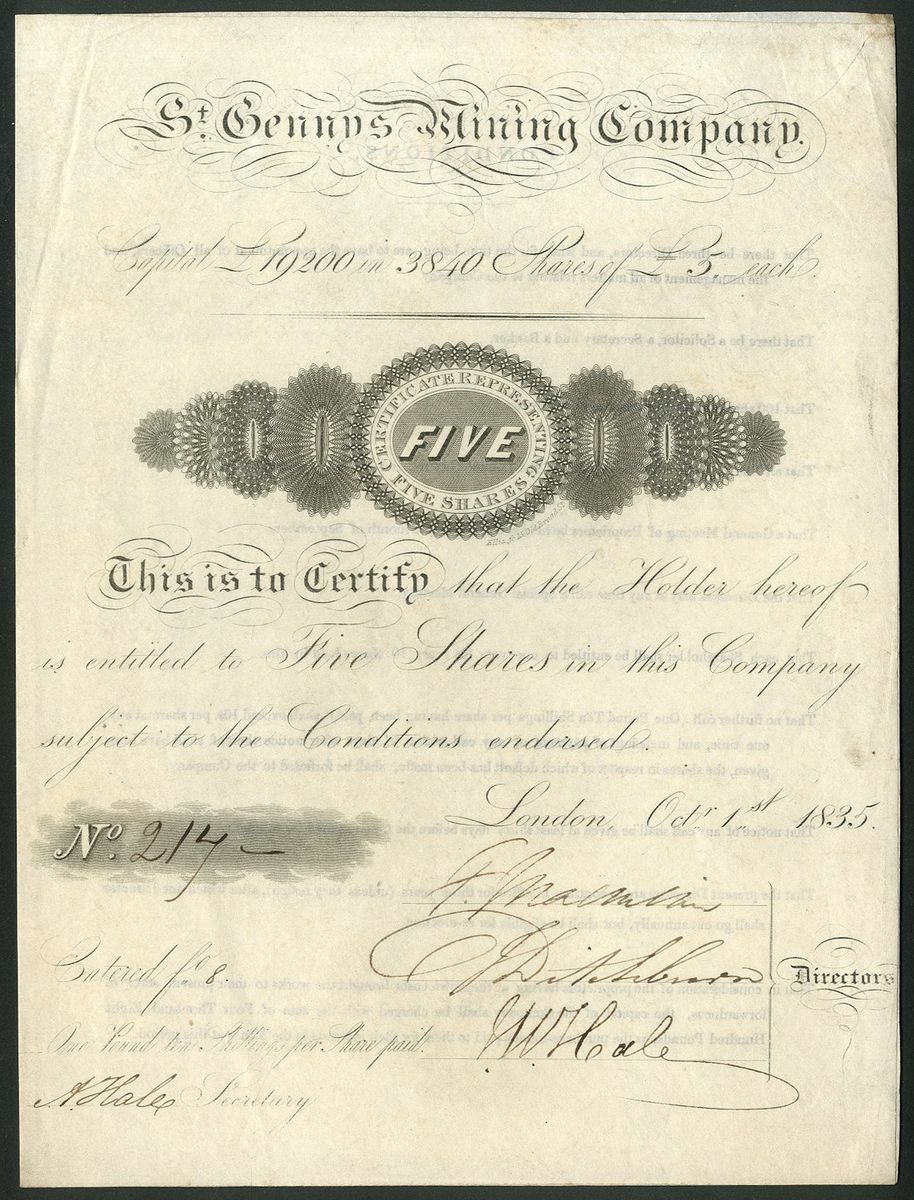 St. Gennys Mining Company.
Capital £19200 in 3840 Shares of £5 each.
CERTIFICATE REPRESENTING
FIVE
FIVE SHARES
This is to Certify that the Holder hereof
is entitled to Five Shares in this Company
subject to the Conditions endorsed.
London, Octr 1st 1835.
No. 217 —
Directors
Entered fo. 8.
One Pound ten Shillings per Share paid.
J W Hale
A. Hale Secretary